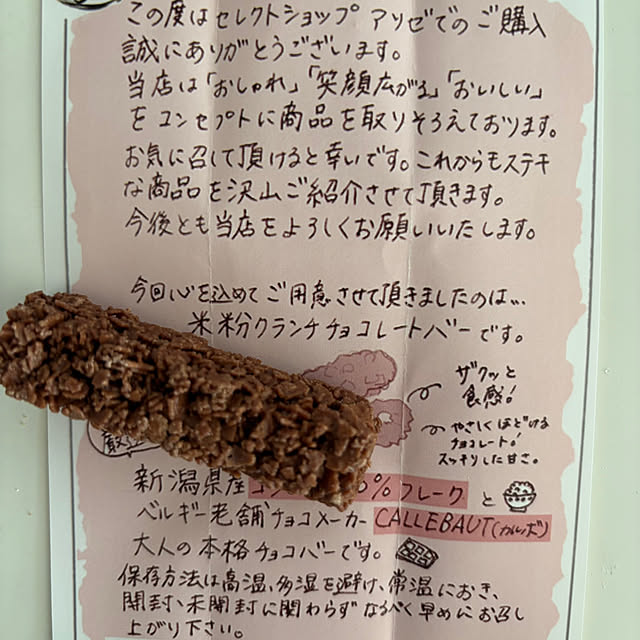 この度はセレクトショップ アソビでのご購入
誠にありがとうございます。
当店は「おしゃれ」「笑顔広がる」「おいしい」
をコンセプトに商品を取りそろえております。
お気に召して頂けると幸いです。これからもステキ
な商品を沢山ご紹介させて頂きます。
今後とも当店をよろしくお願いいたします。
今回心を込めてご用意させて頂きましたのは...
米粉クランチチョコレートバーです。
ザクッと
食感!
やさしくほどける
チョコレート!
スッキリした甘さ。
新潟県産
%フレーク と
ベルギー老舗チョコメーカー CALLEBAUT(カレボー)
大人の本格チョコバーです。
保存方法は高温、多湿を避け、常温におき、
開封、未開封に関わらずなるべく早めにお召し
上がり下さい。